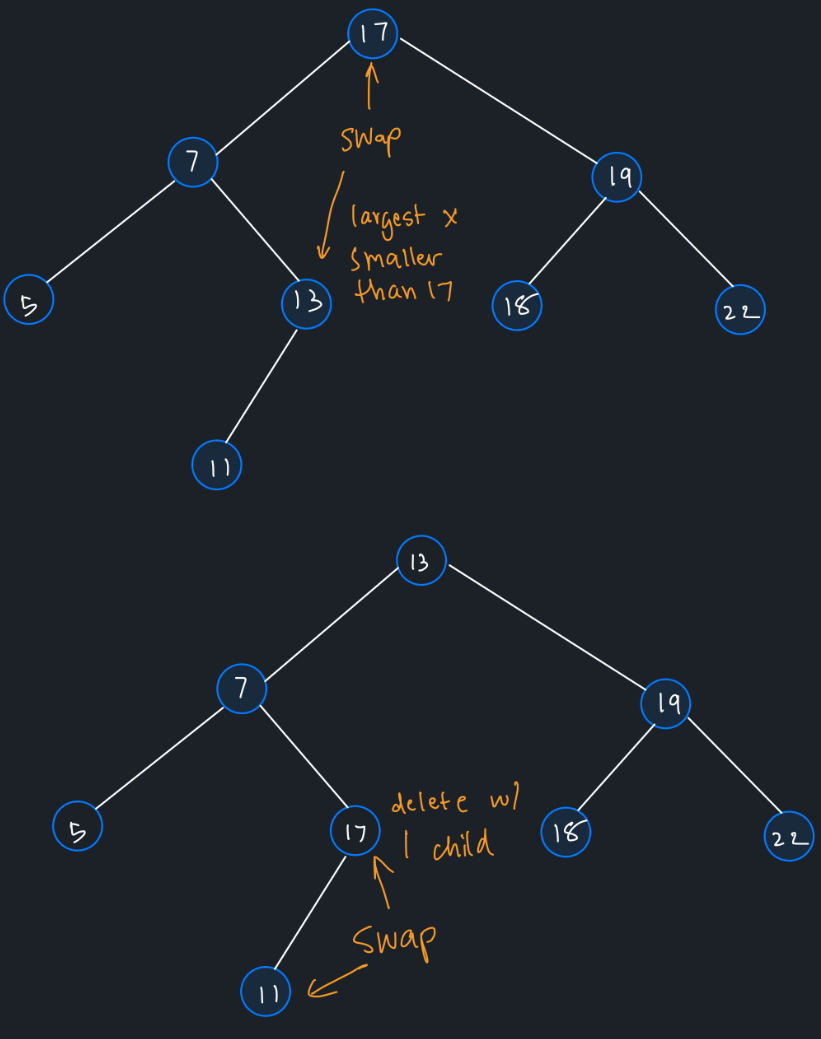 17
swap
7
19
largest x
smaller
than 17
5
13
18
22
11
13
7
19
delete w/
1 child
5
17
18
22
swap
11